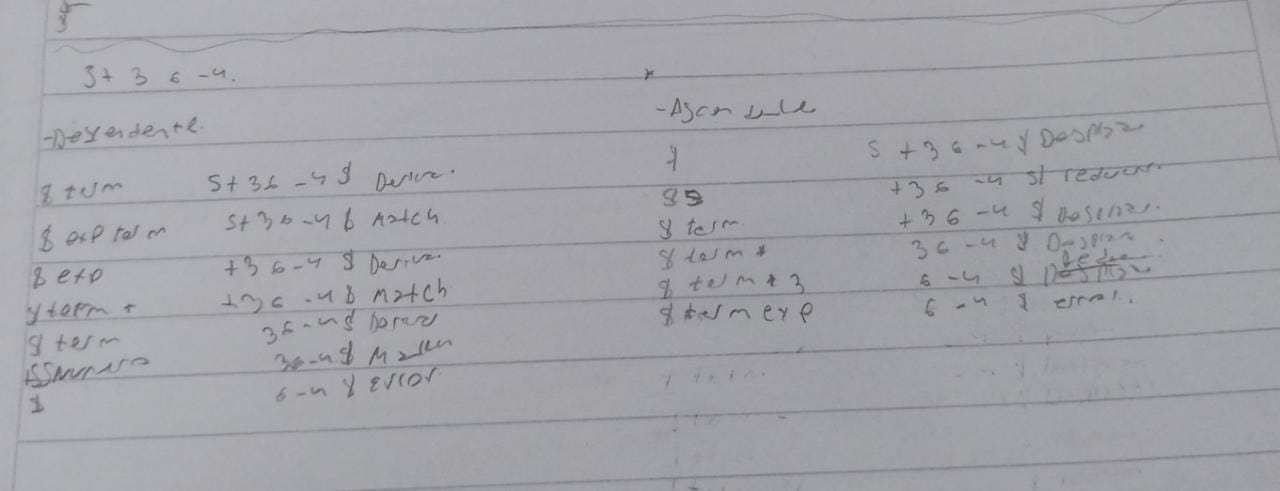 5+ 3 6 -4.
-Descendente.
$ term 5+36 -4 $ Deriva.
$ exp term 5+36 -4 $ Match
$ exp +36 -4 $ Deriva
$ term + +36 -4 $ Match
$ term 36-4 $
36-4 $ Match
$ 6-4 $ error.
-Ascendente
$ 5 +36 -4 $ Desplza
$5 +36 -4 $ reducir.
$ term +36 -4 $
$ term + 36 -4 $
$ term + 3 6 -4 $
$ term exp 6 -4 $ error.